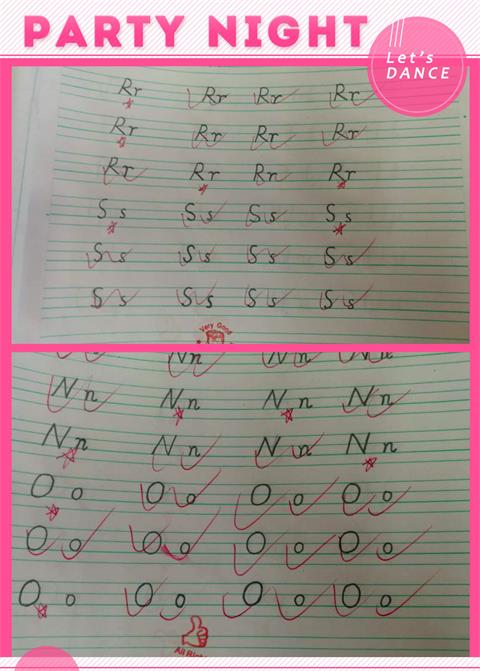 PARTY NIGHT
Let's
DANCE
Rr Rr Rr Rr
Rr Rr Rr Rr
Rr Rr Rr Rr
Ss Ss Ss Ss
Ss Ss Ss Ss
Ss Ss Ss Ss
Very Good
Nn Nn Nn
Nn Nn Nn Nn
Nn Nn Nn Nn
Oo Oo Oo Oo
Oo Oo Oo Oo
Oo Oo Oo Oo
All Right